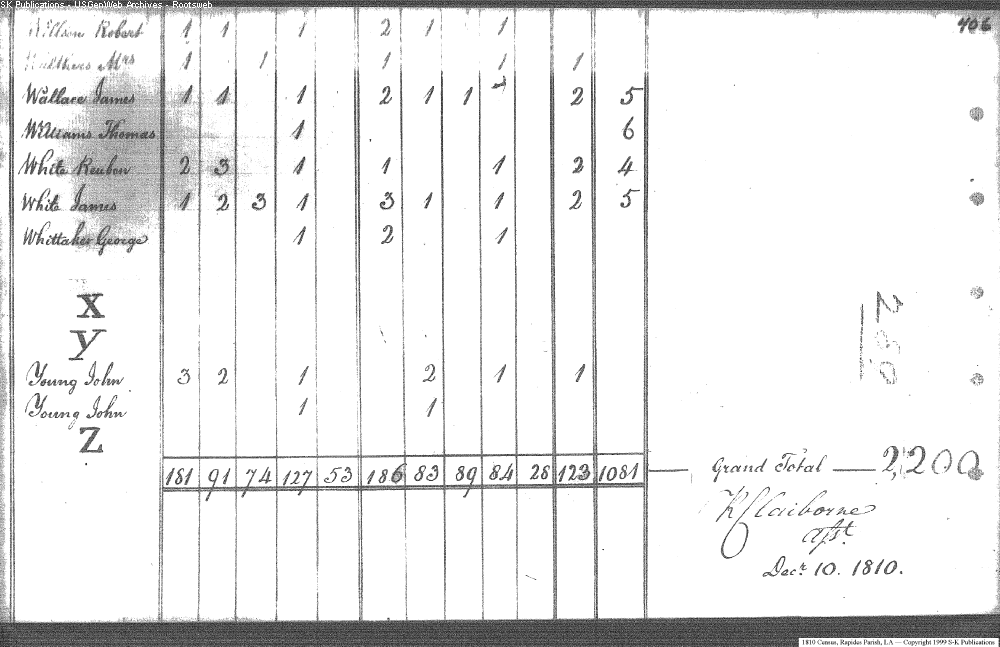 SK Publications - USGenWeb Archives - Rootsweb
406
Willson Robert 1 1 1 2 1 1
Mrs 1 1 1 1 1
Wallace James 1 1 1 2 1 1 2 5
Williams Thomas 1 6
White Reuben 2 3 1 1 1 2 4
White James 1 2 3 1 3 1 1 2 5
Whittaker George 1 2 1
X
Y
Young John 3 2 1 2 1 1
Young John 1 1
Z
181 91 74 127 53 186 83 89 84 28 123 1081 — Grand Total — 2,200
Claiborne
Asst.
Decr. 10. 1810.
1810 Census, Rapides Parish, LA — Copyright 1999 S-K Publications